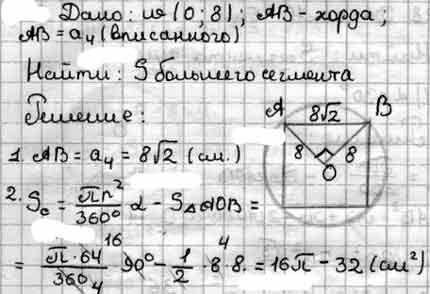 Дано: ω (O; 8); AB - хорда;
AB = a₄ (вписанного)
Найти: S большего сегмента
Решение:
1. AB = a₄ = 8√2 (см.)
A 8√2 B
8 8
O
2. Sₒ = πr²/360° α - S△AOB =
= π·64/360 16 4 · 90° - 1/2 · 8 · 8 4 = 16π - 32 (см²)